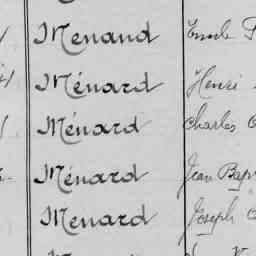 Menaud Emile
Ménard Henri
Ménard Charles
Ménard Jean Bap
Menard Joseph